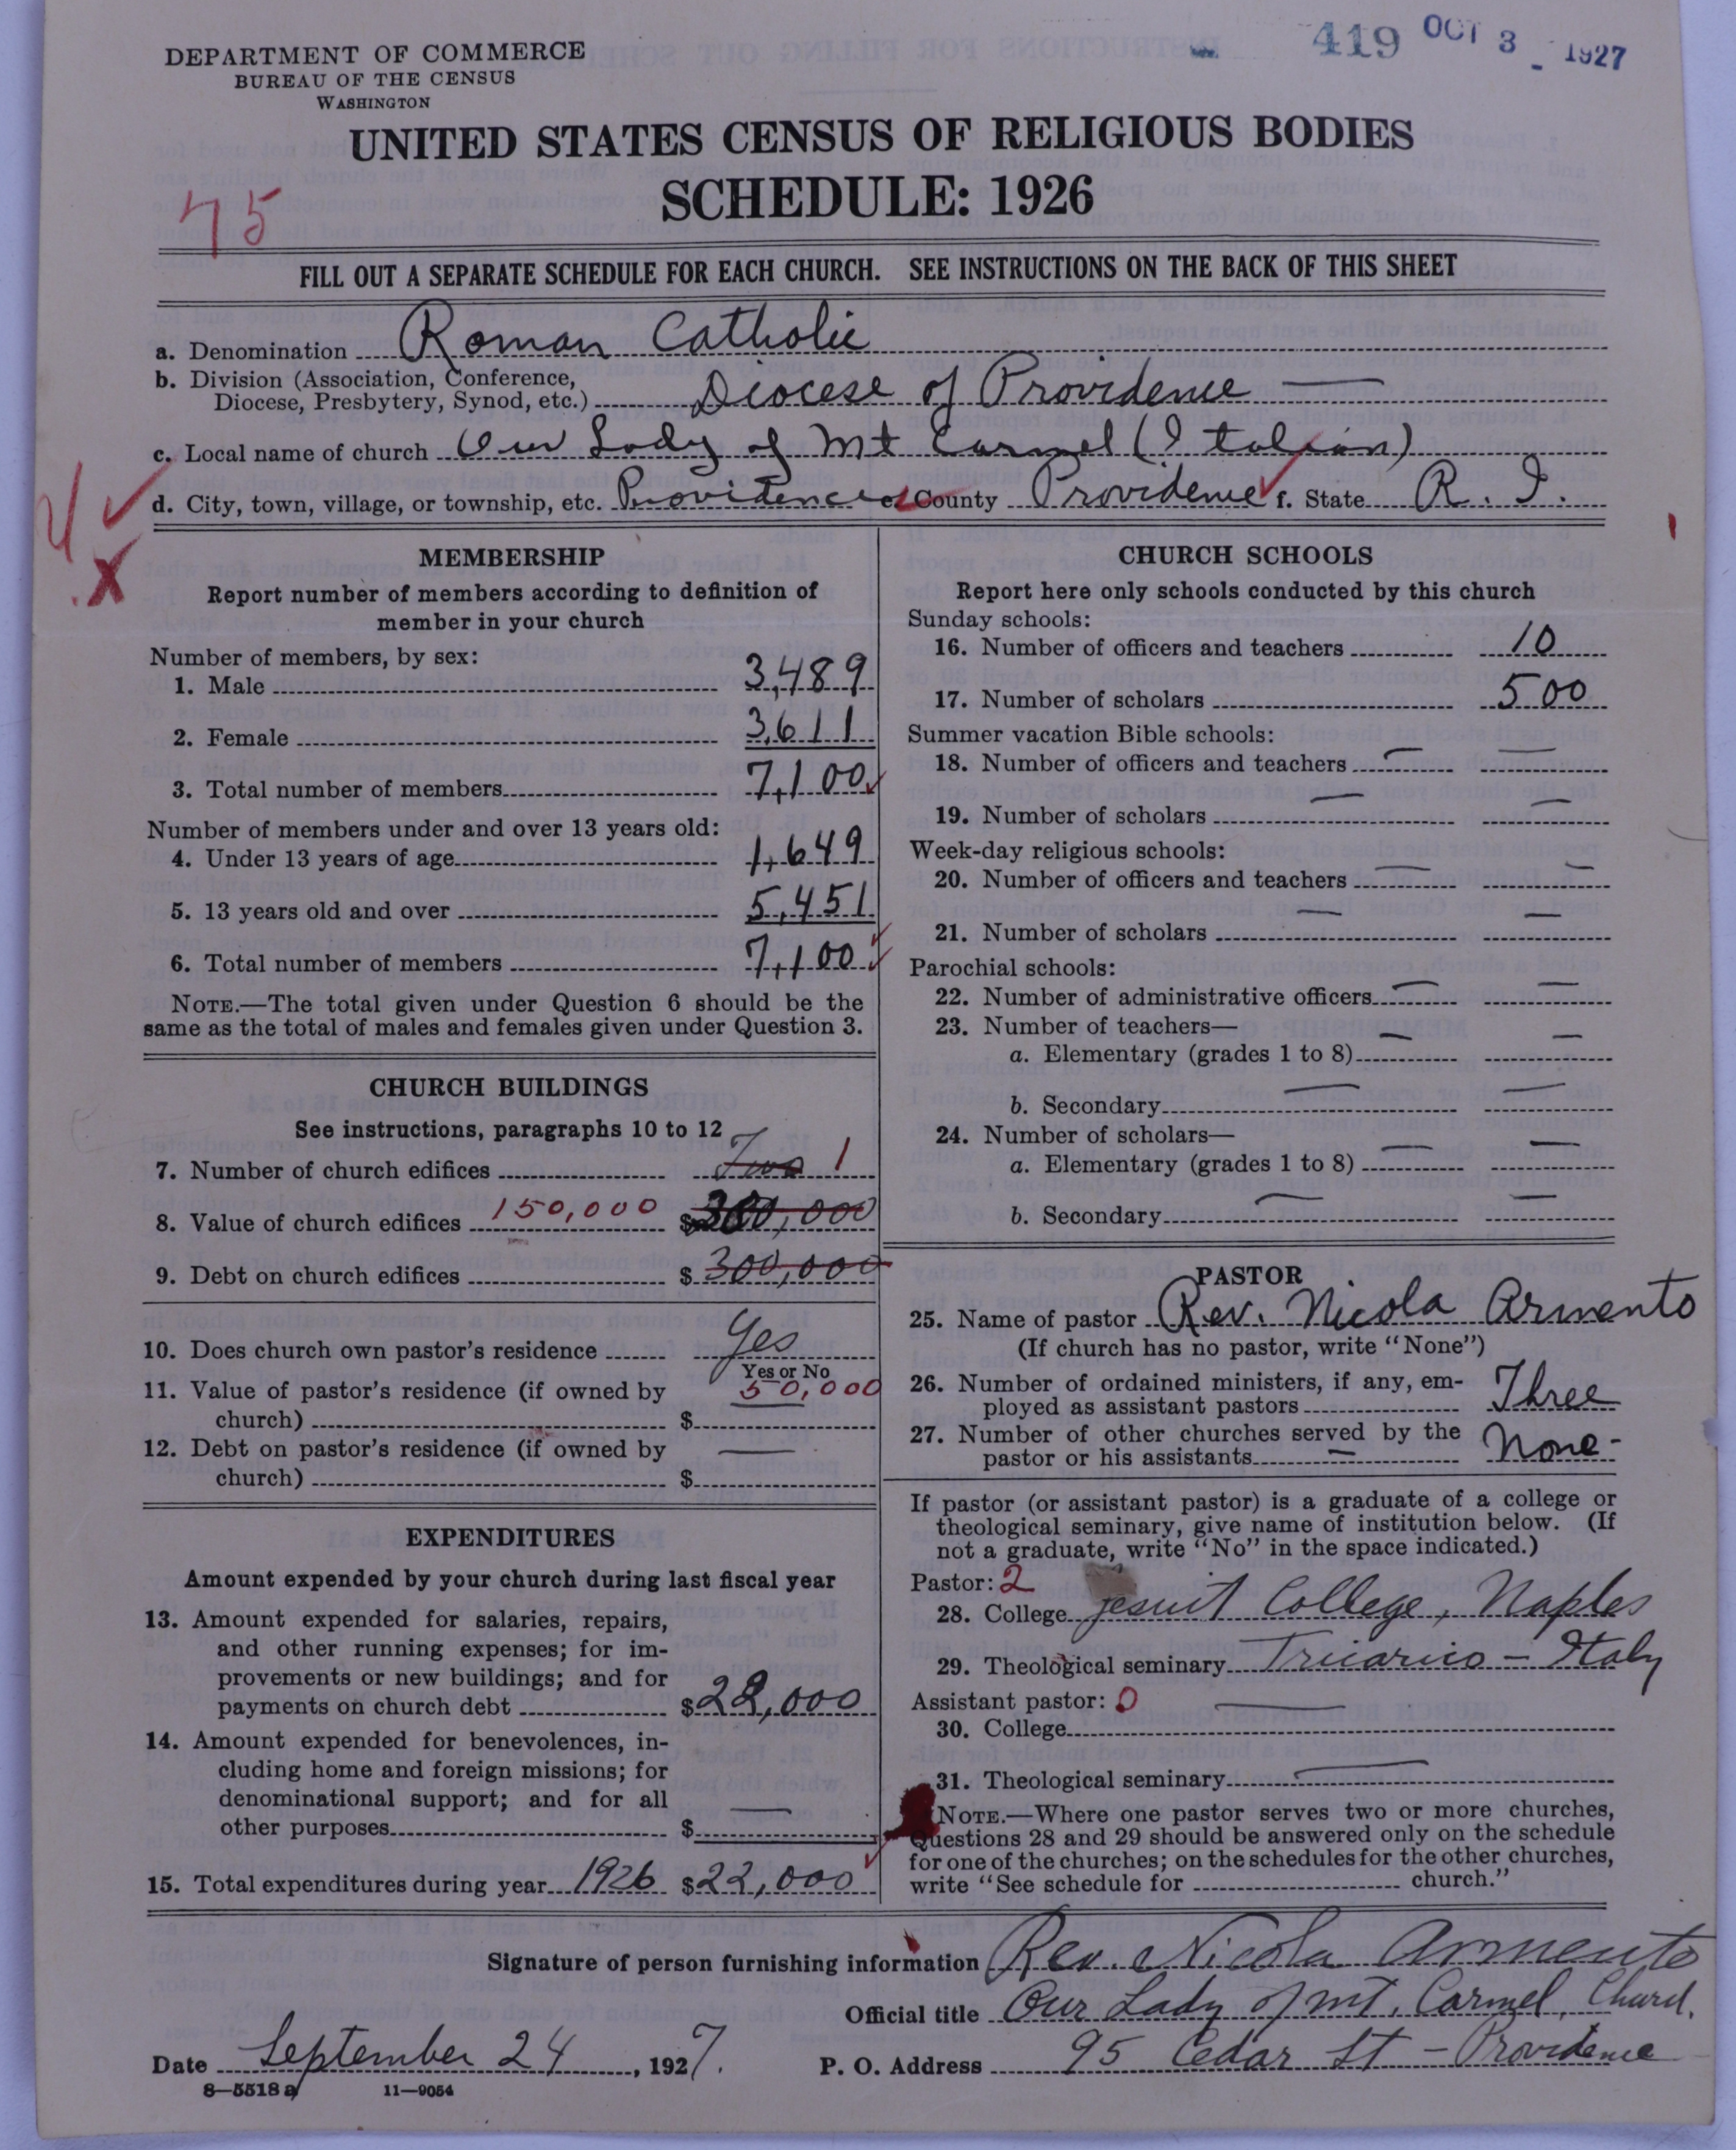 419 OCT 3 - 1927
DEPARTMENT OF COMMERCE
BUREAU OF THE CENSUS
WASHINGTON
UNITED STATES CENSUS OF RELIGIOUS BODIES
SCHEDULE: 1926
75
FILL OUT A SEPARATE SCHEDULE FOR EACH CHURCH. SEE INSTRUCTIONS ON THE BACK OF THIS SHEET
a. Denomination Roman Catholic
b. Division (Association, Conference,
Diocese, Presbytery, Synod, etc.) Diocese of Providence
c. Local name of church Our Lady of Mt Carmel (Italian)
d. City, town, village, or township, etc. Providence e. County Providence f. State R. I.
4
X
MEMBERSHIP
Report number of members according to definition of
member in your church
Number of members, by sex:
1. Male 3,489
2. Female 3,611
3. Total number of members 7,100
Number of members under and over 13 years old:
4. Under 13 years of age 1,649
5. 13 years old and over 5,451
6. Total number of members 7,100
NOTE.—The total given under Question 6 should be the
same as the total of males and females given under Question 3.
CHURCH BUILDINGS
See instructions, paragraphs 10 to 12
7. Number of church edifices Two 1
8. Value of church edifices 150,000 $300,000
9. Debt on church edifices $300,000
10. Does church own pastor's residence Yes
Yes or No
11. Value of pastor's residence (if owned by 50,000
church) $
12. Debt on pastor's residence (if owned by
church) $
EXPENDITURES
Amount expended by your church during last fiscal year
13. Amount expended for salaries, repairs,
and other running expenses; for im-
provements or new buildings; and for
payments on church debt $22,000
14. Amount expended for benevolences, in-
cluding home and foreign missions; for
denominational support; and for all
other purposes $
15. Total expenditures during year 1926 $22,000
CHURCH SCHOOLS
Report here only schools conducted by this church
Sunday schools:
16. Number of officers and teachers 10
17. Number of scholars 500
Summer vacation Bible schools:
18. Number of officers and teachers
19. Number of scholars
Week-day religious schools:
20. Number of officers and teachers
21. Number of scholars
Parochial schools:
22. Number of administrative officers
23. Number of teachers—
a. Elementary (grades 1 to 8)
b. Secondary
24. Number of scholars—
a. Elementary (grades 1 to 8)
b. Secondary
PASTOR
25. Name of pastor Rev. Nicola Armento
(If church has no pastor, write "None")
26. Number of ordained ministers, if any, em-
ployed as assistant pastors Three
27. Number of other churches served by the
pastor or his assistants None-
If pastor (or assistant pastor) is a graduate of a college or
theological seminary, give name of institution below. (If
not a graduate, write "No" in the space indicated.)
Pastor: 2
28. College Jesuit College, Naples
29. Theological seminary Tricarico - Italy
Assistant pastor: 0
30. College
31. Theological seminary
NOTE.—Where one pastor serves two or more churches,
Questions 28 and 29 should be answered only on the schedule
for one of the churches; on the schedules for the other churches,
write "See schedule for church."
Signature of person furnishing information Rev. Nicola Armento
Official title Our Lady of Mt. Carmel, Church.
Date September 24, 1927. P. O. Address 95 Cedar St - Providence
8—5518 a 11—9054